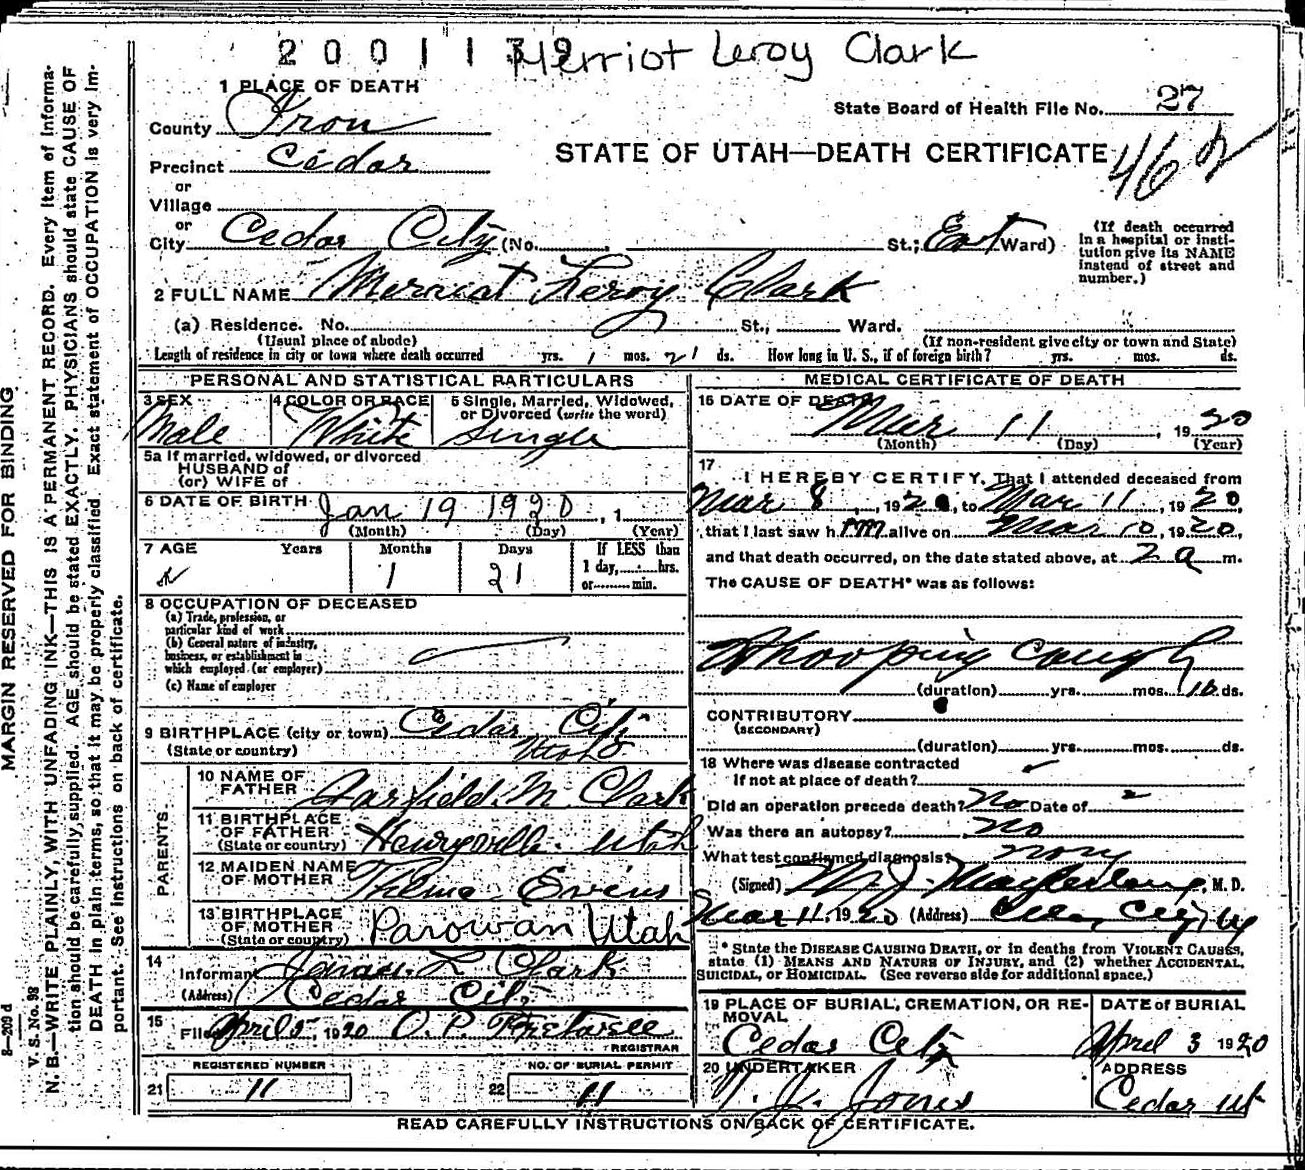 2001139
Merriot Leroy Clark
1 PLACE OF DEATH
State Board of Health File No. 27
County Iron
STATE OF UTAH—DEATH CERTIFICATE
46
Precinct Cedar
or
Village
or
City Cedar City (No. St.; East Ward)
(If death occurred
in a hospital or insti-
tution give its NAME
instead of street and
number.)
2 FULL NAME Merriat Leroy Clark
(a) Residence. No. St., Ward.
(Usual place of abode) (If non-resident give city or town and State)
Length of residence in city or town where death occurred yrs. 1 mos. 21 ds. How long in U. S., if of foreign birth? yrs. mos. ds.
PERSONAL AND STATISTICAL PARTICULARS
3 SEX 4 COLOR OR RACE 5 Single, Married, Widowed,
or Divorced (write the word)
Male White Single
5a If married, widowed, or divorced
HUSBAND of
(or) WIFE of
6 DATE OF BIRTH Jan 19 1920, 1
(Month) (Day) (Year)
7 AGE Years Months Days If LESS than
1 day, hrs.
or min.
1 21
8 OCCUPATION OF DECEASED
(a) Trade, profession, or
particular kind of work
(b) General nature of industry,
business, or establishment in
which employed (or employer)
(c) Name of employer
9 BIRTHPLACE (city or town) Cedar City
(State or country) Utah
PARENTS
10 NAME OF
FATHER Garfield M Clark
11 BIRTHPLACE
OF FATHER
(State or country) Henryville Utah
12 MAIDEN NAME
OF MOTHER Thelma Evins
13 BIRTHPLACE
OF MOTHER
(State or country) Parowan Utah
14
Informant L Clark
(Address) Cedar City
15
Filed April 5, 1920 O. P.
REGISTRAR
REGISTERED NUMBER NO. OF BURIAL PERMIT
21 11 22 11
MEDICAL CERTIFICATE OF DEATH
16 DATE OF DEATH
Mar 11, 1920
(Month) (Day) (Year)
17
I HEREBY CERTIFY, That I attended deceased from
Mar 8, 1920, to Mar 11, 1920,
that I last saw him alive on Mar 10, 1920,
and that death occurred, on the date stated above, at 2 a m.
The CAUSE OF DEATH* was as follows:
Whooping Cough
(duration) yrs. mos. 10 ds.
CONTRIBUTORY
(SECONDARY)
(duration) yrs. mos. ds.
18 Where was disease contracted
If not at place of death?
Did an operation precede death? No Date of
Was there an autopsy? No
What test confirmed diagnosis?
(Signed) M. J. Macfarlane, M. D.
Mar 11, 1920 (Address) Cedar City, Ut
* State the DISEASE CAUSING DEATH, or in deaths from VIOLENT CAUSES,
state (1) MEANS AND NATURE OF INJURY, and (2) whether ACCIDENTAL,
SUICIDAL, or HOMICIDAL. (See reverse side for additional space.)
19 PLACE OF BURIAL, CREMATION, OR RE-
MOVAL
Cedar City
DATE of BURIAL
April 3 1920
20 UNDERTAKER
T. J. Jones
ADDRESS
Cedar Ut
READ CAREFULLY INSTRUCTIONS ON BACK OF CERTIFICATE.
MARGIN RESERVED FOR BINDING
8—209 d
V. S. No. 98
N. B.—WRITE PLAINLY, WITH UNFADING INK—THIS IS A PERMANENT RECORD. Every item of informa-
tion should be carefully supplied. AGE should be stated EXACTLY. PHYSICIANS should state CAUSE OF
DEATH in plain terms, so that it may be properly classified. Exact statement of OCCUPATION is very im-
portant. See instructions on back of certificate.